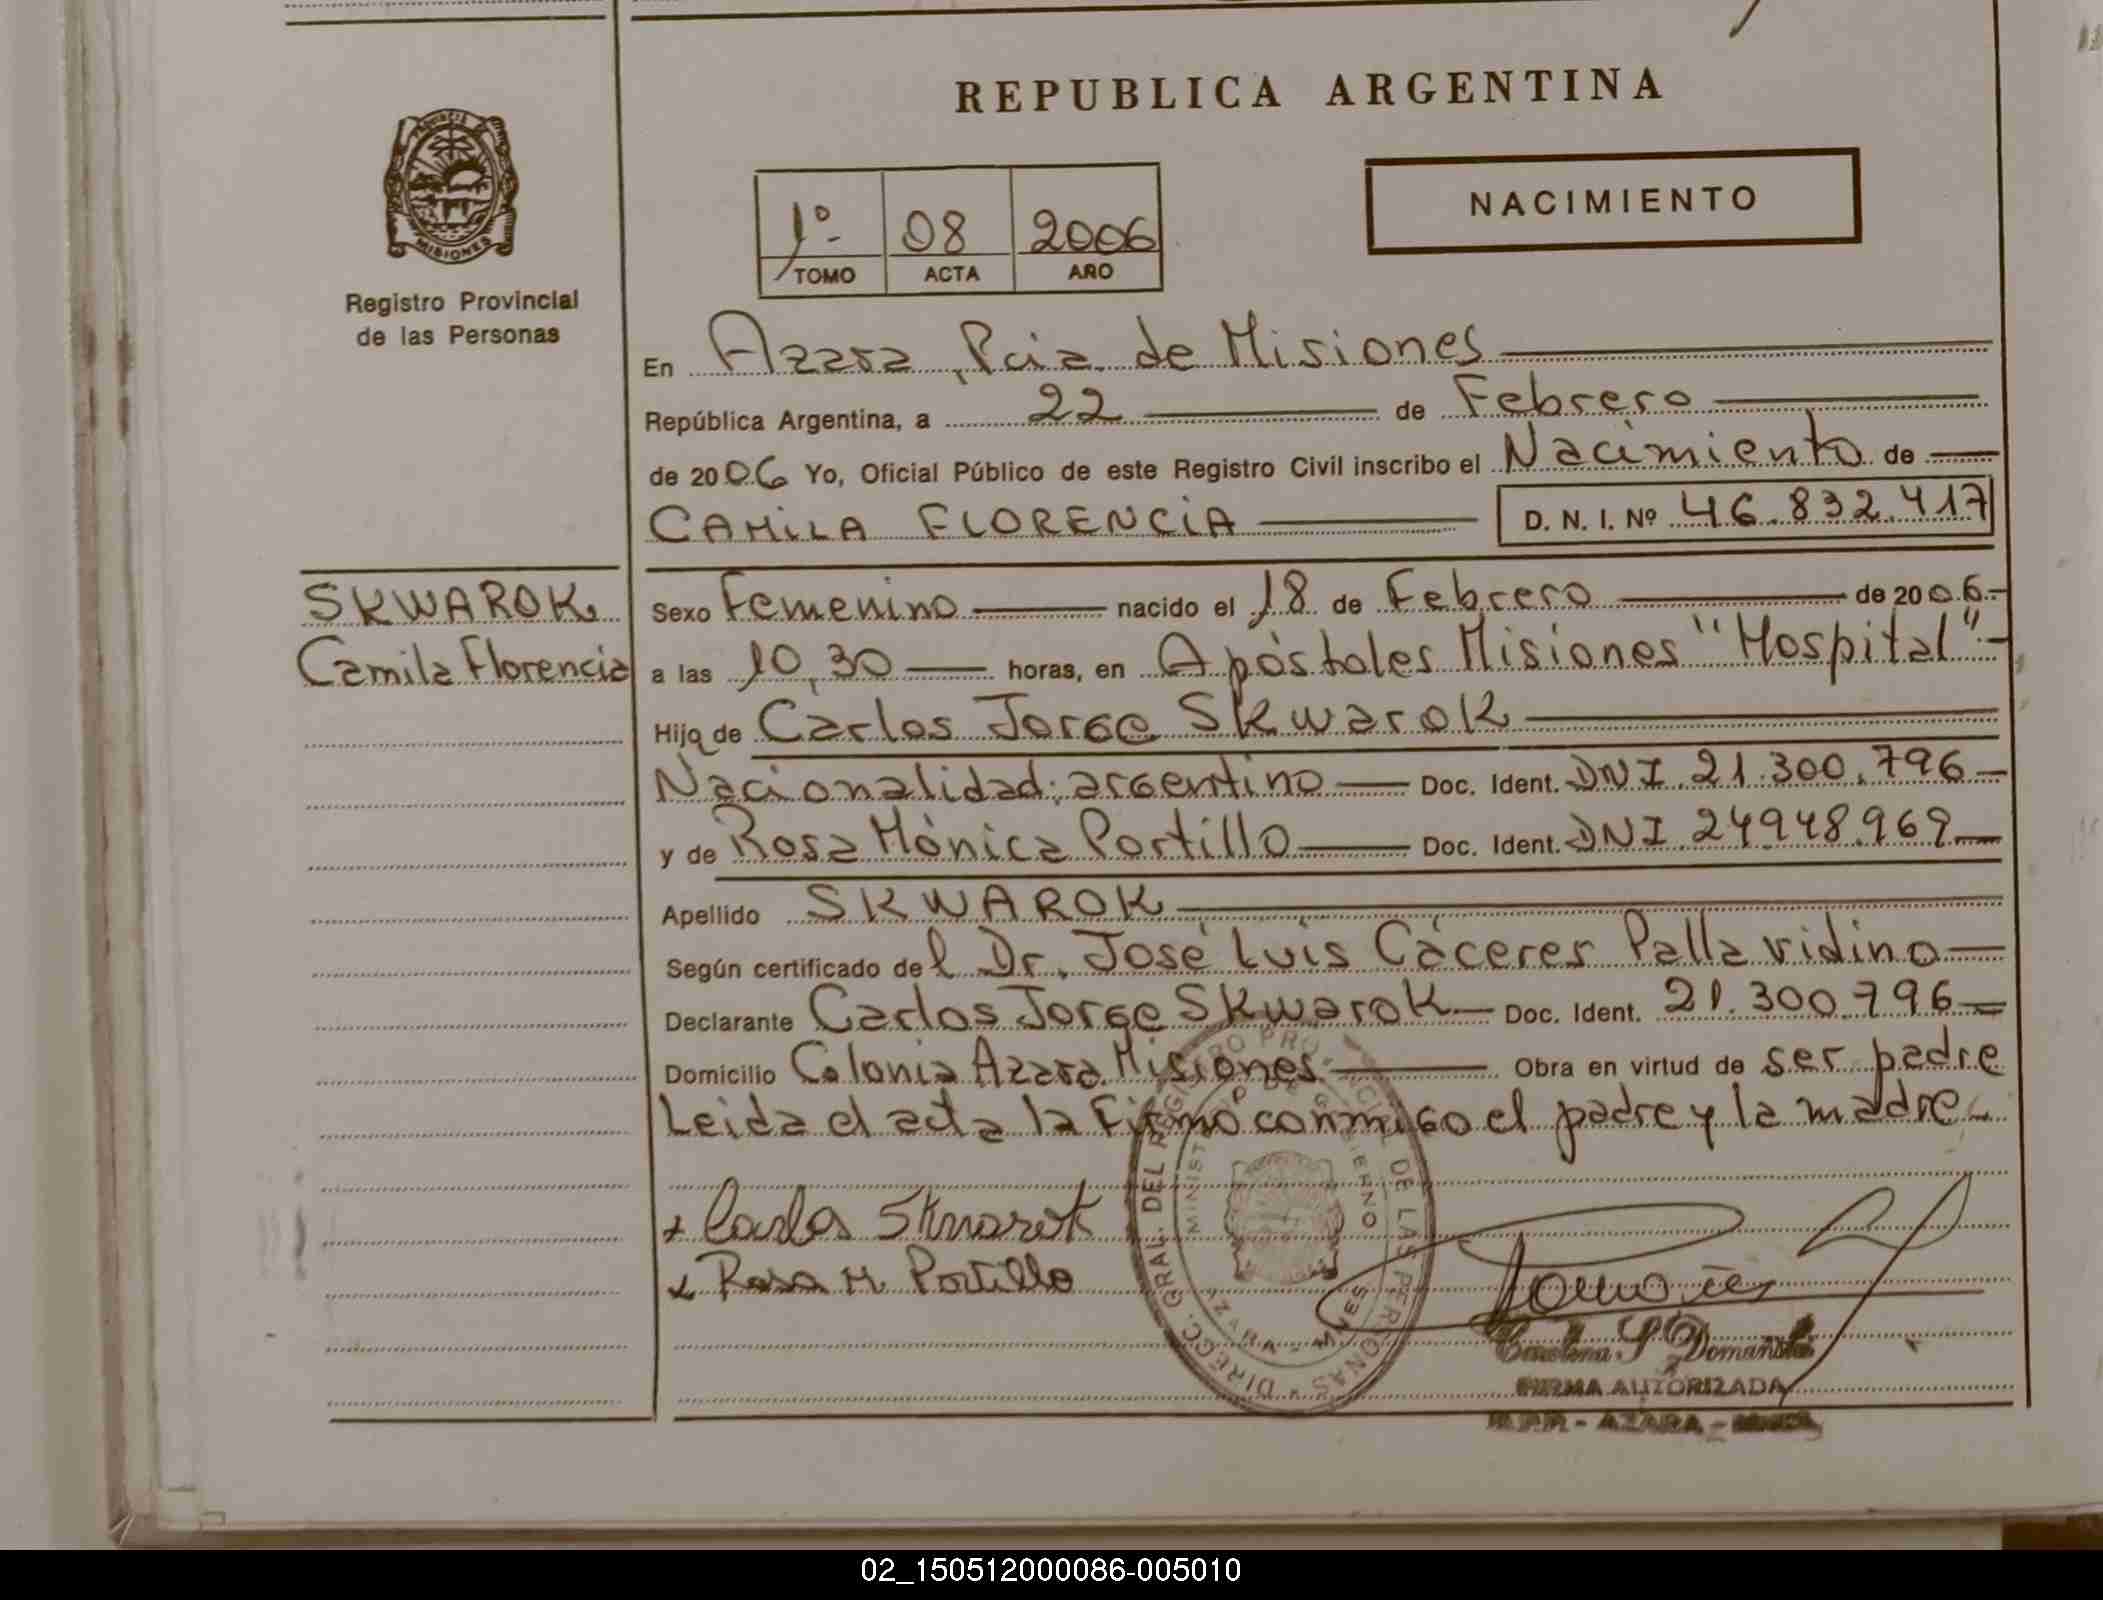 REPUBLICA ARGENTINA
PROVINCIA DE
MISIONES
Registro Provincial
de las Personas
1º 08 2006
TOMO ACTA AÑO
NACIMIENTO
En Azara, Pcia. de Misiones
República Argentina, a 22 de Febrero
de 2006 Yo, Oficial Público de este Registro Civil inscribo el Nacimiento de
CAMILA FLORENCIA D. N. I. Nº 46.832.417
SKWAROK
Camila Florencia
Sexo Femenino nacido el 18 de Febrero de 2006.-
a las 10,30 horas, en Apóstoles Misiones "Hospital".-
Hija de Carlos Jorge Skwarok
Nacionalidad: argentino Doc. Ident. DNI. 21.300.796
y de Rosa Mónica Portillo Doc. Ident. DNI. 24948.969
Apellido SKWAROK
Según certificado del Dr. José Luis Cáceres Pallavidino
Declarante Carlos Jorge Skwarok Doc. Ident. 21.300.796
Domicilio Colonia Azara. Misiones Obra en virtud de ser padre
Leida el acta la Firmó conmigo el padre y la madre
x Carlos Skwarok
x Rosa M. Portillo
DIRECC. GRAL. DEL REGISTRO PROVINCIAL DE LAS PERSONAS
MINISTERIO DE GOBIERNO
AZARA - MNES
FIRMA AUTORIZADA
02_150512000086-005010